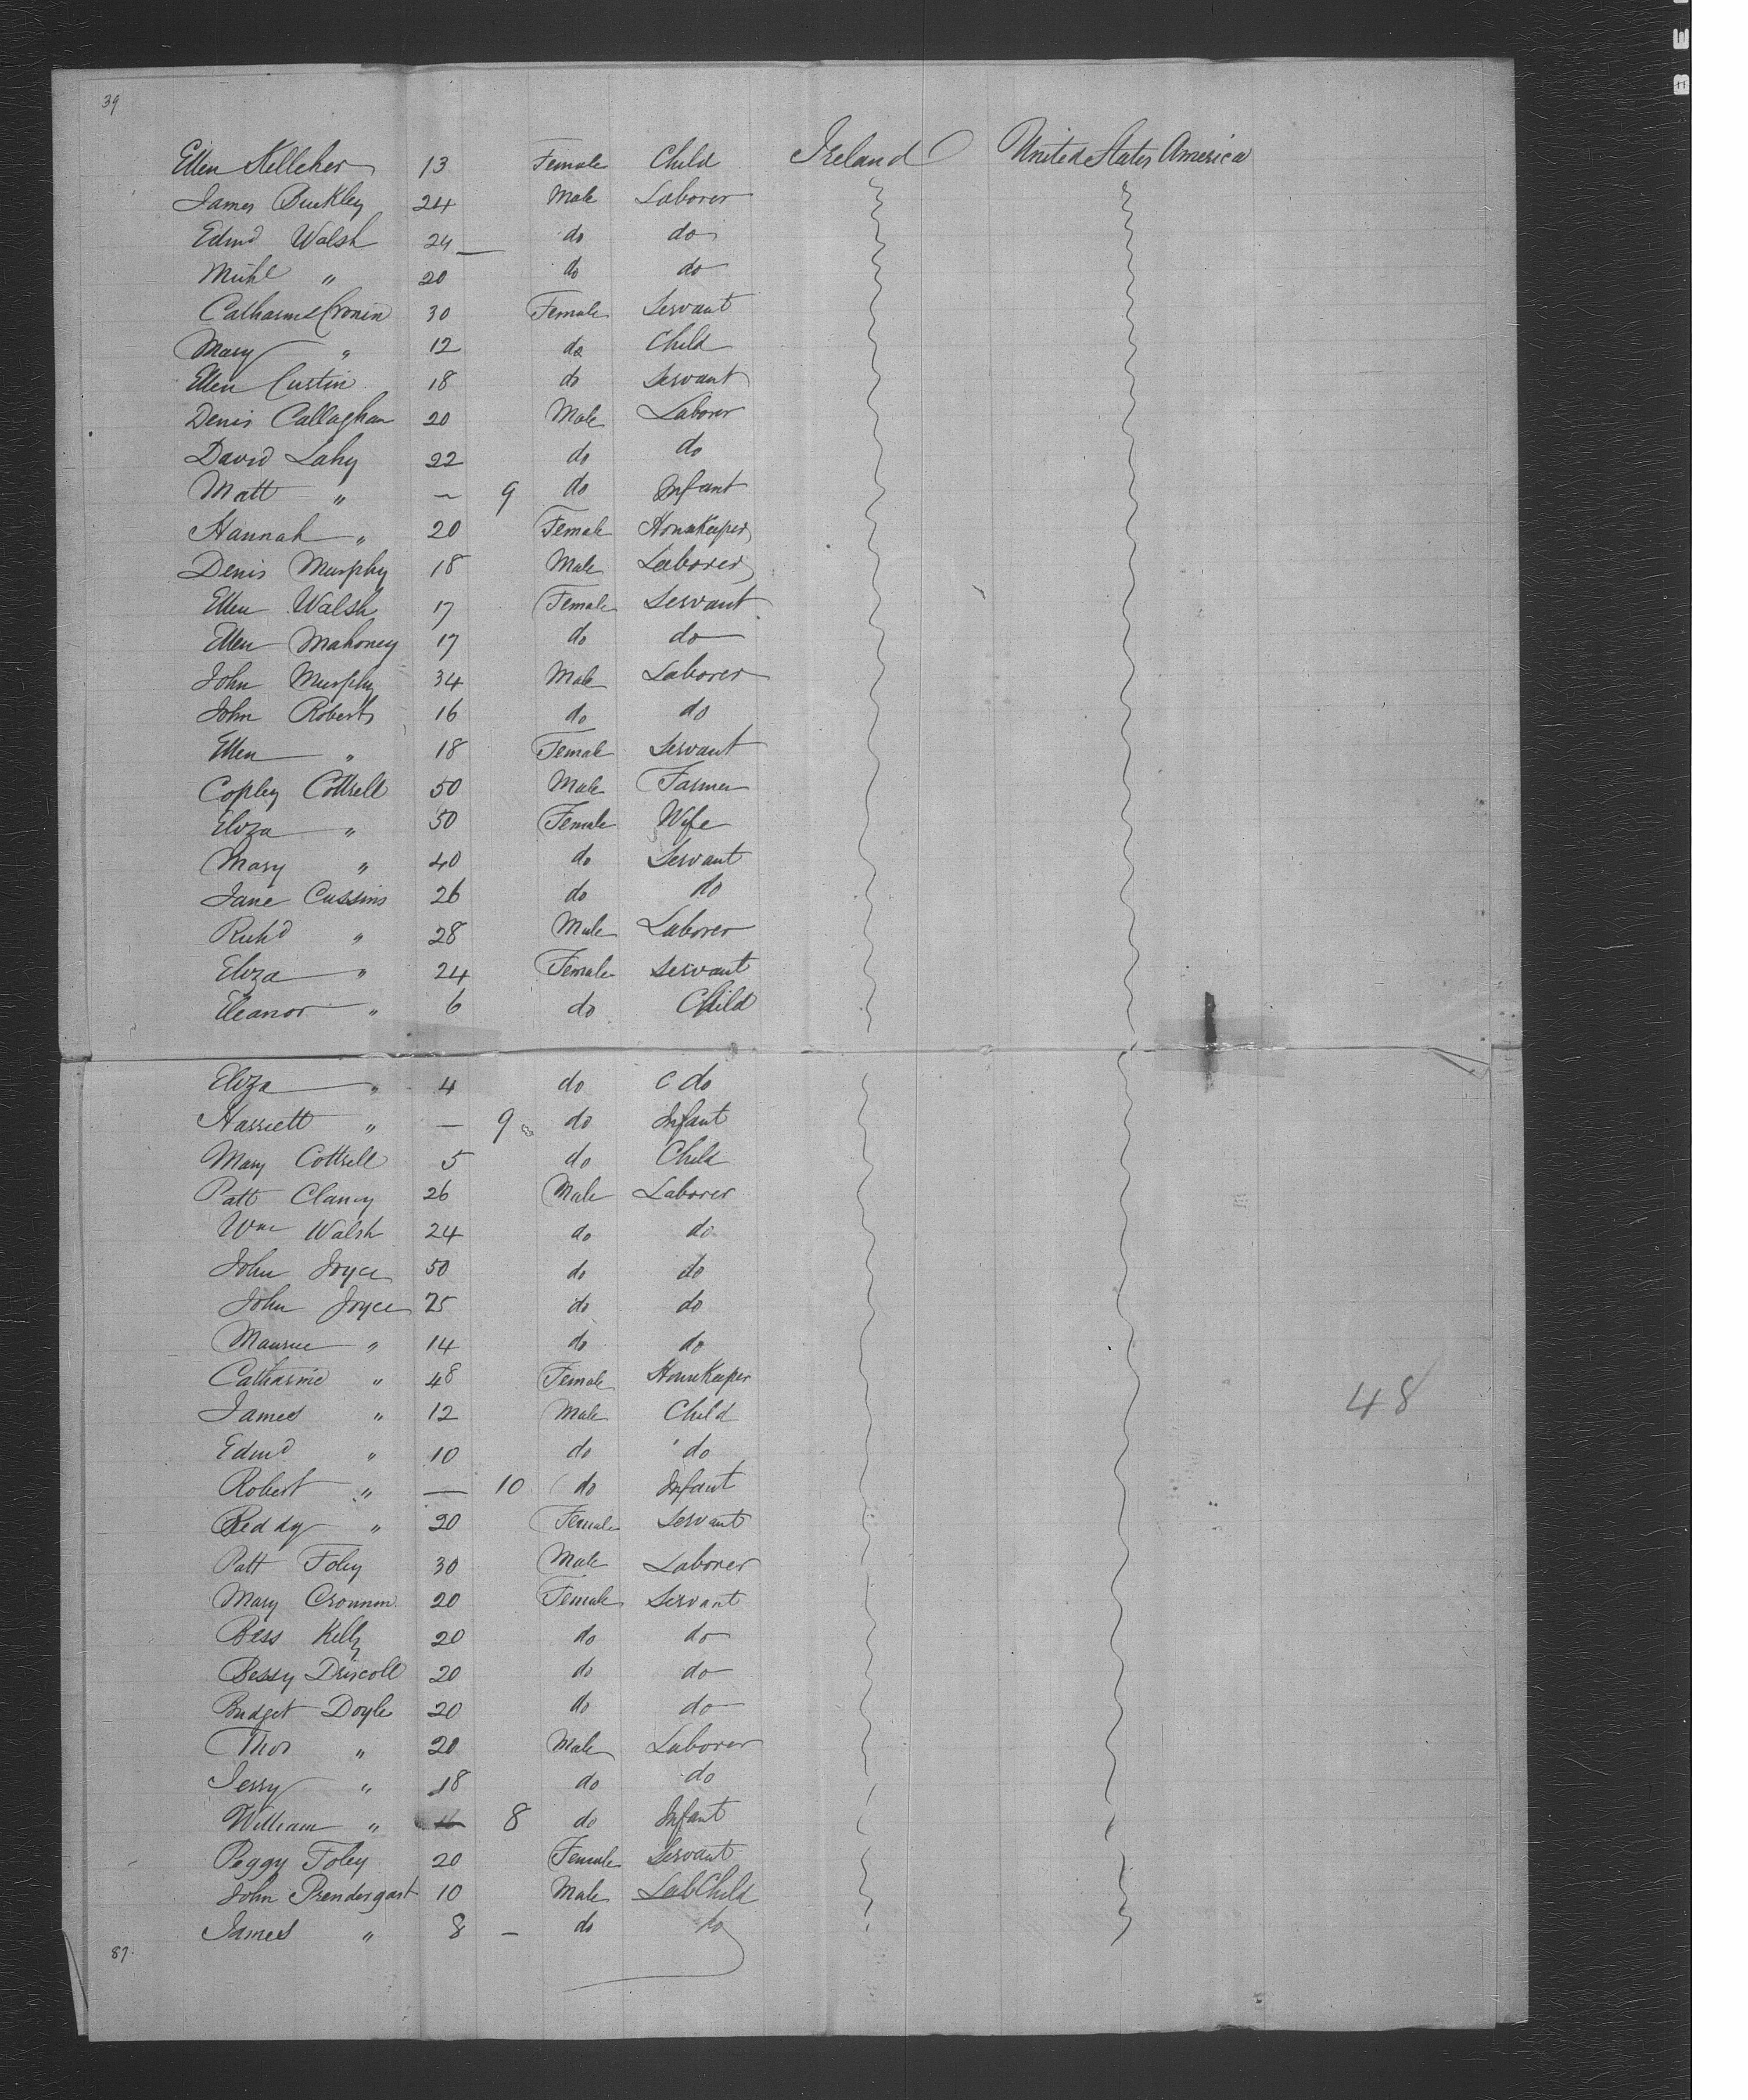 39
Ellen Kelleher 13 Female Child Ireland United States America
James Buckley 24 Male Laborer
Edmd Walsh 24 — do do
Michl " 20 do do
Catharine Cronin 30 Female Servant
Mary " 12 do Child
Ellen Curtin 18 do Servant
Denis Callaghan 20 Male Laborer
David Lahy 22 do do
Matt " — 9 do Infant
Hannah " 20 Female Housekeeper
Denis Murphy 18 Male Laborer
Ellen Walsh 17 Female Servant
Ellen Mahoney 17 do do
John Murphy 34 Male Laborer
John Roberts 16 do do
Ellen " 18 Female Servant
Copley Cottrell 50 Male Farmer
Eliza " 50 Female Wife
Mary " 40 do Servant
Jane Cussins 26 do do
Richd " 28 Male Laborer
Eliza " 24 Female Servant
Eleanor " 6 do Child
Eliza " 4 do c do
Harriett " — 9 do Infant
Mary Cottrell 5 do Child
Patt Clancy 26 Male Laborer
Wm Walsh 24 do do
John Joyce 50 do do
John Joyce 25 do do
Maurice " 14 do do
Catharine " 48 Female Housekeeper
James " 12 Male Child
48
Edmd " 10 do do
Robert " — 10 do Infant
Biddy " 20 Female Servant
Patt Foley 30 Male Laborer
Mary Cronnin 20 Female Servant
Bess Kelly 20 do do
Bessy Driscoll 20 do do
Bridget Doyle 20 do do
Thos " 20 Male Laborer
Jerry " 18 do do
William " 8 do Infant
Peggy Foley 20 Female Servant
John Prendergast 10 Male Lab Child
James " 8 — do do
87.